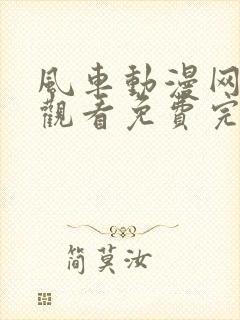 風車動漫网
觀看免費完
簡莫汝